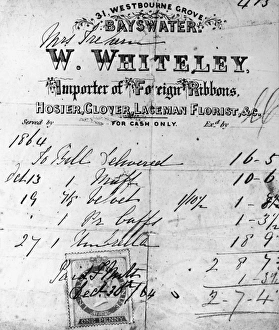 413
31, WESTBOURNE GROVE
BAYSWATER.
Mrs
W. WHITELEY,
Importer of Foreign Ribbons,
HOSIER, GLOVER, LACEMAN FLORIST, &c.
Served by FOR CASH ONLY. Exd. by
1864
To Bill delivered 16-5
Oct 13 1 Muff 10-6
19 velvet
1 Pr Cuffs
27 1 Umbrella 18 9
2 8
ONE PENNY
Oct. 64
2-7-4